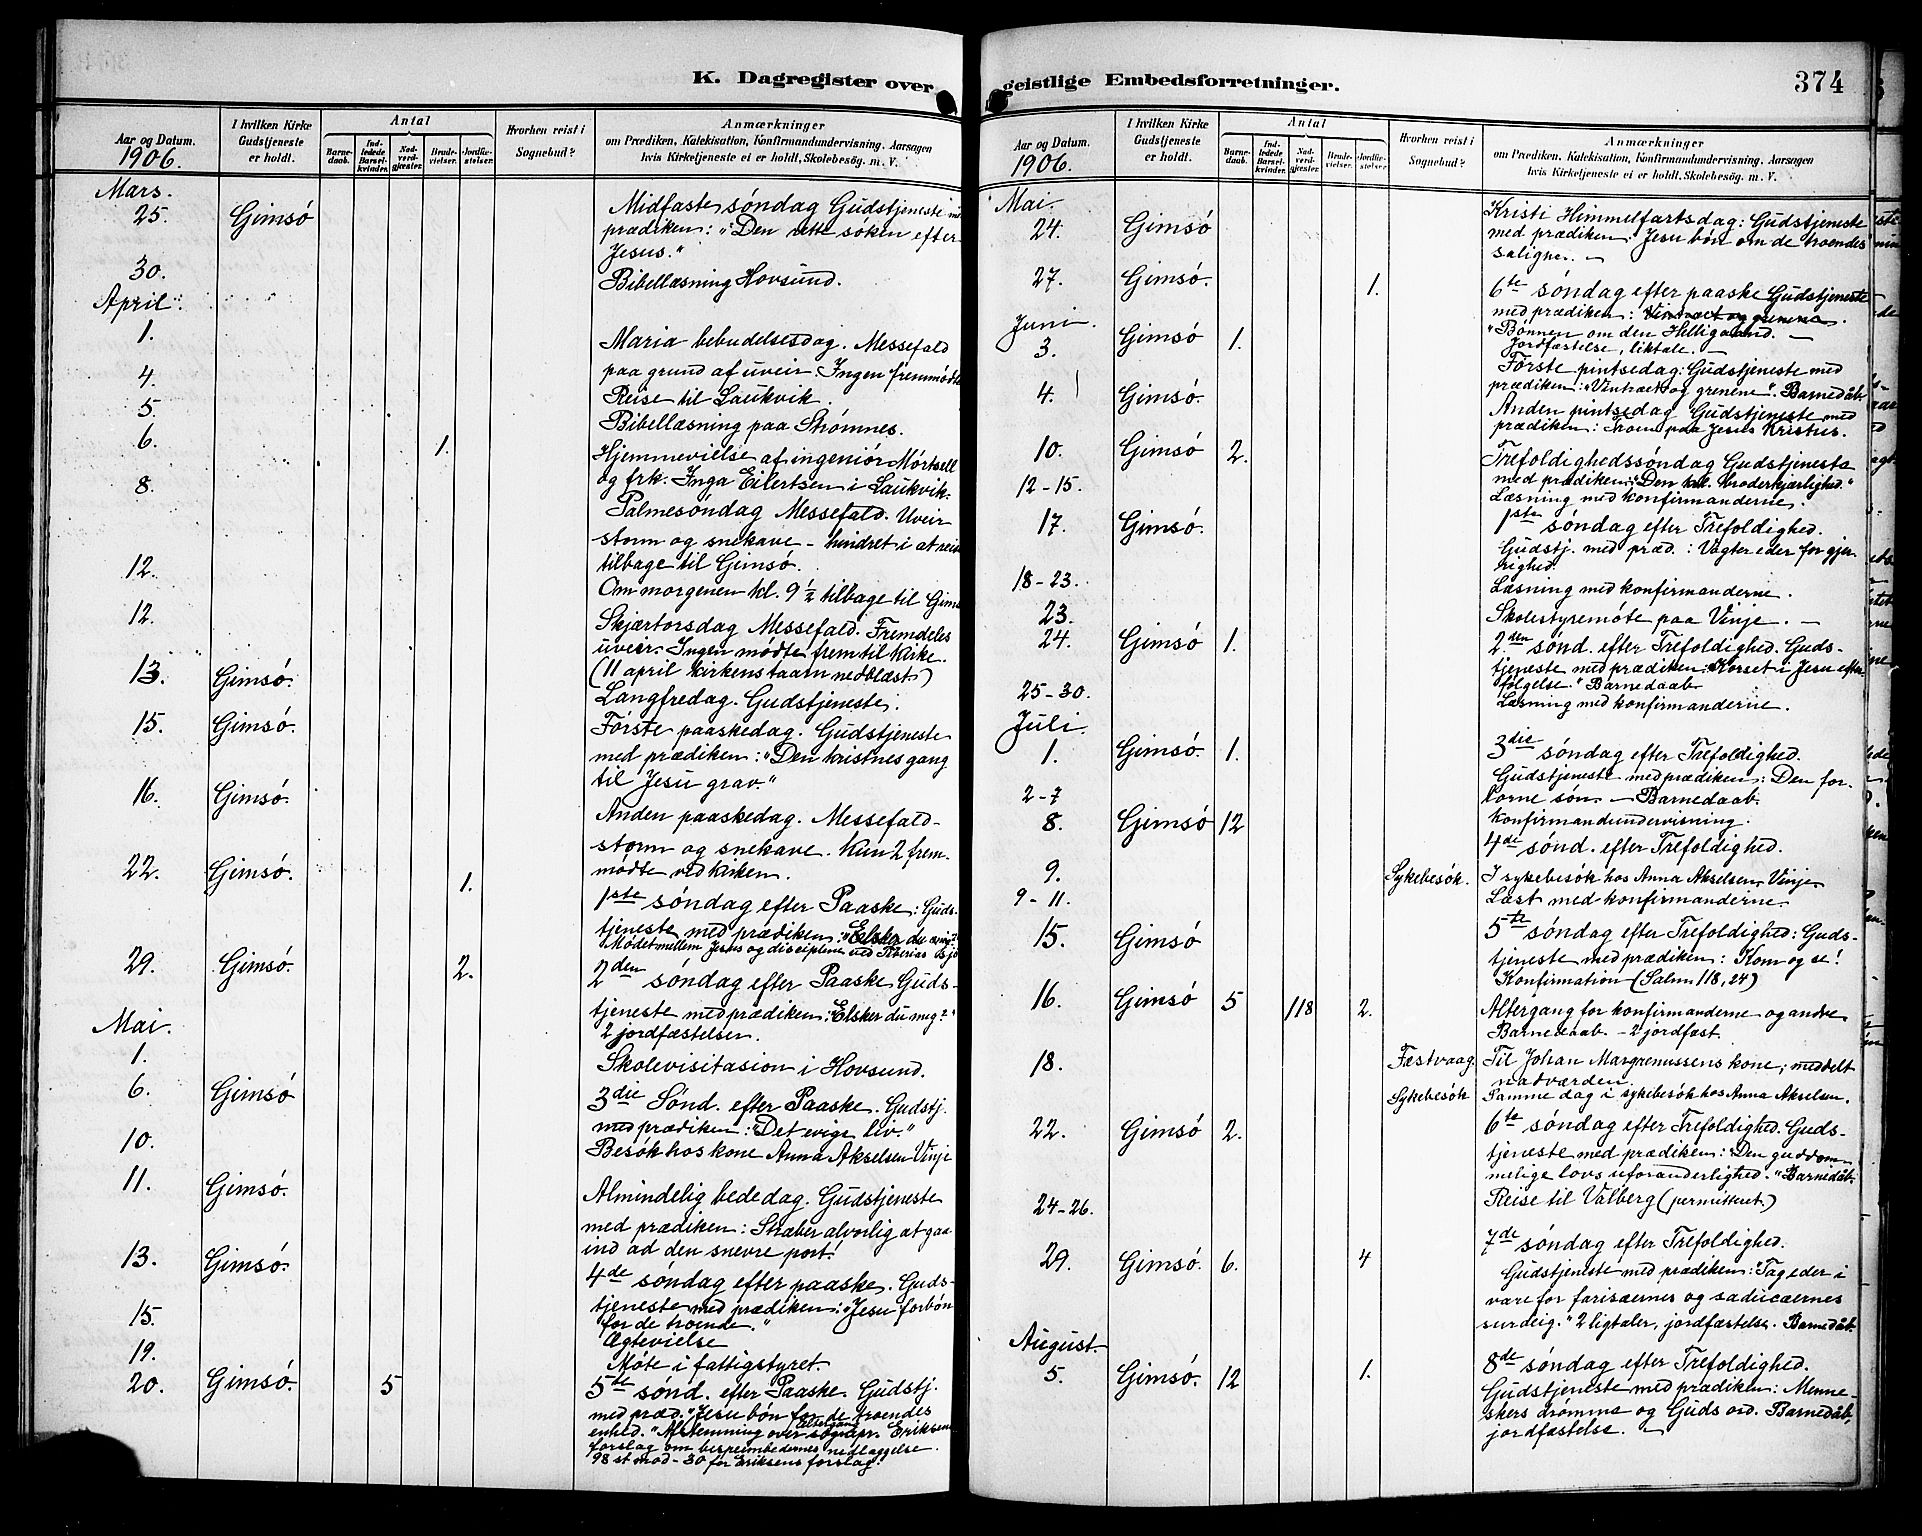 K. Dagregister over
Aar og Datum.
1906.
I hvilken Kirke
Gudstjeneste
er holdt.
Antal
Barne-
daab.
Ind-
ledede
Barsel-
kvinder.
Nad-
verd-
gjæster.
Brude-
vielser.
Jordfæ-
stelser.
Hvorhen reist i
Sognebud?
Anmærkninger
om Prædiken, Katekisation, Konfirmandundervisning, Aarsagen
hvis Kirketjeneste ei er holdt, Skolebesøg. m. V.
Mars.
25. Gimsø Midfaste søndag Gudstjeneste
prædiken: "Den rette søken efter
Jesus."
30. Bibellæsning Hovsund.
April.
1. Maria bebudelsesdag. Messefald
paa grund af uveir. Ingen fremmødte
4. Reise til Laukvik.
5. Bibellæsning paa Strømnes.
6. 1. Hjemmevielse af ingeniør Mørtsell
og frk. Inga Eilertsen i Laukvik.
8. Palmesøndag Messefald. Uveir
storm og snekave - hindret i at reise
tilbage til Gimsø.
12. Om morgenen kl. 9½ tilbage til Gims
12. Skjærtorsdag Messefald. Fremdeles
uveir. Ingen mødte frem til kirke.
(11 april kirkens taarn nedblæst)
13. Gimsø. Langfredag. Gudstjeneste.
15. Gimsø. Første paaskedag. Gudstjeneste
med prædiken: "Den kristnes gang
til Jesu grav."
16. Gimsø. Anden paaskedag. Messefald-
storm og snekave. Kun 2 frem-
mødte ved kirken.
22. Gimsø. 1. 1ste søndag efter Paaske: Guds-
tjeneste med prædiken: "Elsker du mig?
Mødet mellem Jesus og disciplene ved Tiberias Sjø
29. Gimsø. 2. 2den søndag efter Paaske Guds-
tjeneste med prædiken: "Elsker du meg?"
2 jordfæstelser.
Mai.
1. Skolevisitasion i Hovsund.
6. Gimsø 3die Sønd. efter Paaske. Gudstj.
med prædiken: "Det evige liv."
10. Besøk hos kone Anna Akselsen Vinje
11. Gimsø. Almindelig bededag. Gudstjeneste
med prædiken: Stræber alvorlig at gaa
ind ad den snevre port!
13. Gimsø. 4de søndag efter paaske. Guds-
tjeneste med prædiken: "Jesu forbøn
for de troende."
15. Ægtevielse
19. Møte i fattigstyret.
20. Gimsø. 5 5te sønd. efter Paaske. Gudstj.
med præd. "Jesu bøn for de troendes
enhed." Altergang Afstemning over sognepr. Eriksens
forslag om bispeembedernes nedlæggelse.
98 st mod - 30 for Eriksens forslag.
geistlige Embedsforretninger.
374
Aar og Datum.
1906.
I hvilken Kirke
Gudstjeneste
er holdt.
Antal
Barne-
daab.
Ind-
ledede
Barsel-
kvinder.
Nad-
verd-
gjæster.
Brude-
vielser.
Jordfæ-
stelser.
Hvorhen reist i
Sognebud?
Anmærkninger
om Prædiken, Katekisation, Konfirmandundervisning, Aarsagen
hvis Kirketjeneste ei er holdt, Skolebesøg. m. V.
Mai.
24. Gimsø Kristi Himmelfartsdag: Gudstjeneste
med prædiken: Jesu bøn om de troendes
salighe. -
27. Gimsø. 1. 6te søndag efter paaske Gudstjeneste
med prædiken: Vintræet og grenene.
"Bønnen om den Helligaand. -
Jordfæstelse, liktale. -
Juni.
3. Gimsø 1. Første pintsedag: Gudstjeneste med
prædiken: "Vintræet og grenene". Barnedåb
4. Gimsø. Anden pintsedag Gudstjeneste med
prædiken: Troen paa Jesus Kristus.
10. Gimsø 2. Trefoldighedssøndag Gudstjeneste
med prædiken: "Den broderkjærlighed."
12-15. Læsning med konfirmanderne.
17. Gimsø. 1ste søndag efter Trefoldighed.
Gudstj. med præd.: Vogter eder for gjer-
righed.
18-23. Læsning med konfirmanderne.
23. Skolestyremøte paa Vinje. -
24. Gimsø 1. 2den sønd. efter Trefoldighed. Guds-
tjeneste med prædiken: Korset i Jesu efter
følgelse." Barnedaab
25-30. Læsning med konfirmanderne.
Juli
1. Gimsø. 1. 3die søndag efter Trefoldighed.
Gudstjeneste med prædiken: Den for-
lorne søn. - Barnedaab.
2-7 Konfirmandundervisning.
8. Gimsø 12 4de sønd. efter Trefoldighed.
9. Sykebesøk. I sykebesøk hos Anna Akselsen, Vinje
9-11. Læst med konfirmanderne.
15. Gimsø 5te søndag efter Trefoldighed: Guds-
tjeneste med prædiken: Kom og se!
Konfirmation (Salm 118, 24)
16. Gimsø 5 118 2. Altergang for konfirmanderne og andre
Barnedaab - 2 jordfæst.
18. Fæstvaag. Til Johan Margrenussens kone; meddelt
nadværden.
Sykebesøk Samme dag i sykebesøk hos Anna Akselsen.
22. Gimsø 2. 6te søndag efter Trefoldighed. Guds-
tjeneste med prædiken: "Den guddom-
melige lovs uforanderlighed." Barnedåb.
24-26. Reise til Valberg (permitteret.)
29. Gimsø. 6. 4 7de søndag efter Trefoldighed.
Gudstjeneste med prædiken: "Tag eder i
vare for farisæernes og saducæernes
surdeig." 2 ligtaler, jordfæstelse. Barnedåb.
August.
5. Gimsø. 12 1. 8de søndag efter Trefoldighed.
Gudstjeneste med prædiken: Menne-
skers drømme og Guds ord. Barnedåb,
jordfæstelse. -